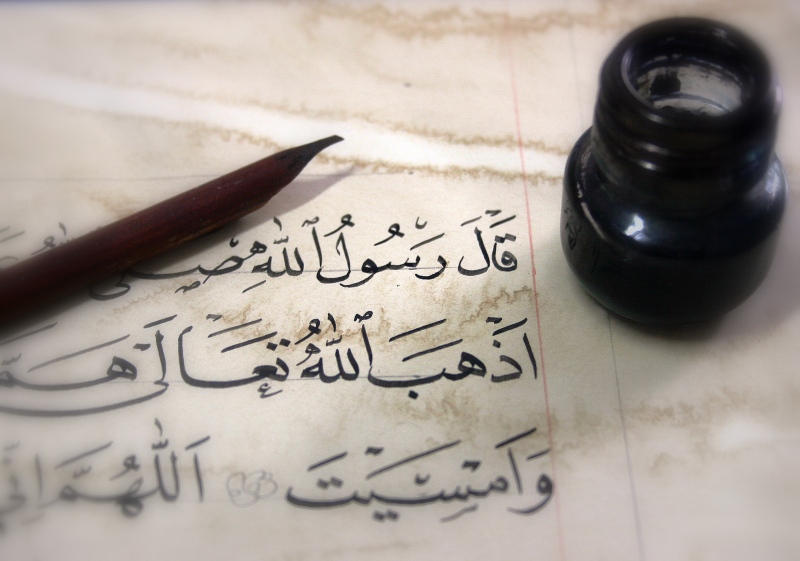 قَالَ رَسُولُ ٱللّٰهِ
اَذْهَبَ ٱللّٰهُ تَعَالَى
وَاَمْسَيْتَ اَللّٰهُمَّ اِنِّي